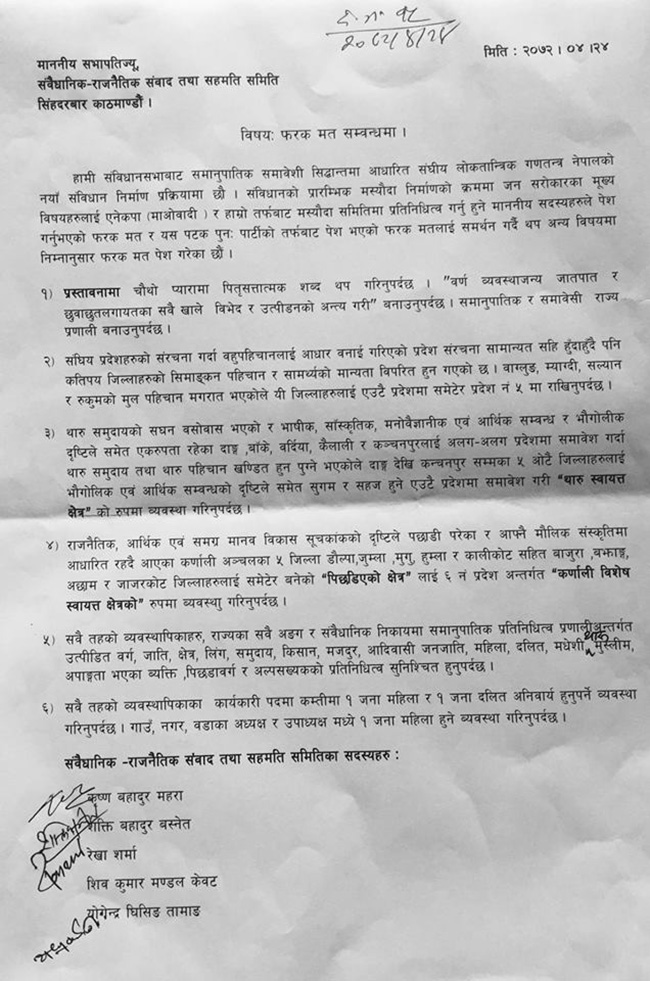 द.नं. ९८
२०७२/४/२४
मिति : २०७२ । ०४ ।२४
माननीय सभापतिज्यू,
संवैधानिक-राजनैतिक संबाद तथा सहमति समिति
सिंहदरबार काठमाण्डौं ।
विषय: फरक मत सम्वन्धमा ।
हामी संविधानसभाबाट समानुपातिक समावेशी सिद्धान्तमा आधारित संघीय लोकतान्त्रिक गणतन्त्र नेपालको
नयाँ संविधान निर्माण प्रक्रियामा छौ । संविधानको प्रारम्भिक मस्यौदा निर्माणको क्रममा जन सरोकारका मूख्य
विषयहरुलाई एनेकपा (माओवादी ) र हाम्रो तर्फबाट मस्यौदा समितिमा प्रतिनिधित्व गर्नु हुने माननीय सदस्यहरुले पेश
गर्नुभएको फरक मत र यस पटक पुन: पार्टीको तर्फबाट पेश भएको फरक मतलाई समर्थन गर्दै थप अन्य विषयमा
निम्नानुसार फरक मत पेश गरेका छौं ।
१) प्रस्तावनामा चौथो प्यारामा पितृसत्तात्मक शब्द थप गरिनुपर्दछ । "वर्ण व्यवस्थाजन्य जातपात र
छुवाछुतलगायतका सवै खाले विभेद र उत्पीडनको अन्त्य गरी" बनाउनुपर्दछ । समानुपातिक र समावेसी राज्य
प्रणाली बनाउनुपर्दछ ।
२) संघिय प्रदेशहरुको संरचना गर्दा वहुपहिचानलाई आधार बनाई गरिएको प्रदेश संरचना सामान्यत सहि हुँदाहुँदै पनि
कतिपय जिल्लाहरुको सिमाङ्कन पहिचान र सामर्थ्यको मान्यता विपरित हुन गएको छ । वाग्लुङ, म्याग्दी, सल्यान
र रुकुमको मुल पहिचान मगरात भएकोले यी जिल्लाहरुलाई एउटै प्रदेशमा समेटेर प्रदेश नं ५ मा राखिनुपर्दछ ।
३) थारु समुदायको सघन बसोवास भएको र भाषीक, साँस्कृतिक, मनोवैज्ञानीक एवं आर्थिक सम्वन्ध र भौगोलीक
दृष्टिले समेत एकरुपता रहेका दाङ्ग ,बाँके, वर्दिया, कैलाली र कञ्चनपुरलाई अलग-अलग प्रदेशमा समावेश गर्दा
थारु समुदाय तथा थारु पहिचान खण्डित हुन पुग्ने भएकोले दाङ्ग देखि कन्चनपुर सम्मका ५ ओटै जिल्लाहरुलाई
भौगोलिक एवं आर्थिक सम्वन्धको दृष्टिले समेत सुगम र सहज हुने एउटै प्रदेशमा समावेश गरी "थारु स्वायत्त
क्षेत्र" को रुपमा व्यवस्था गरिनुपर्दछ ।
४) राजनैतिक, आर्थिक एवं समग्र मानव विकास सूचकांकको दृष्टिले पछाडी परेका र आफ्नै मौलिक संस्कृतिमा
आधारित रहदै आएका कर्णाली अञ्चलका ५ जिल्ला डौल्पा,जुम्ला ,मुगु, हुम्ला र कालीकोट सहित बाजुरा ,बझाङ्ग,
अछाम र जाजरकोट जिल्लाहरुलाई समेटेर बनेको "पिछडिएको क्षेत्र" लाई ६ नं प्रदेश अन्तर्गत "कर्णाली विशेष
स्वायत्त क्षेत्रको" रुपमा व्यवस्था गरिनुपर्दछ ।
५) सवै तहको व्यवस्थापिकाहरु, राज्यका सवै अङग र संवैधानिक निकायमा समानुपातिक प्रतिनिधित्व प्रणालीअन्तर्गत
उत्पीडित वर्ग, जाति, क्षेत्र, लिंग, समुदाय, किसान, मजदुर, आदिवासी जनजाति, महिला, दलित, मधेशी, थारु मुस्लीम,
अपाङ्गता भएका व्यक्ति ,पिछडावर्ग र अल्पसख्यकको प्रतिनिधित्व सुनिश्चित हुनुपर्दछ ।
६) सवै तहको व्यवस्थापिकाका कार्यकारी पदमा कम्तीमा १ जना महिला र १ जना दलित अनिवार्य हुनुपर्ने व्यवस्था
गरिनुपर्दछ । गाउँ, नगर, वडाका अध्यक्ष र उपाध्यक्ष मध्ये १ जना महिला हुने व्यवस्था गरिनुपर्दछ ।
संवैधानिक -राजनैतिक संवाद तथा सहमति समितिका सदस्यहरु :
कृष्ण बहादुर महरा
शक्ति बहादुर बस्नेत
रेखा शर्मा
शिव कुमार मण्डल केवट
योगेन्द्र घिसिङ तामाङ